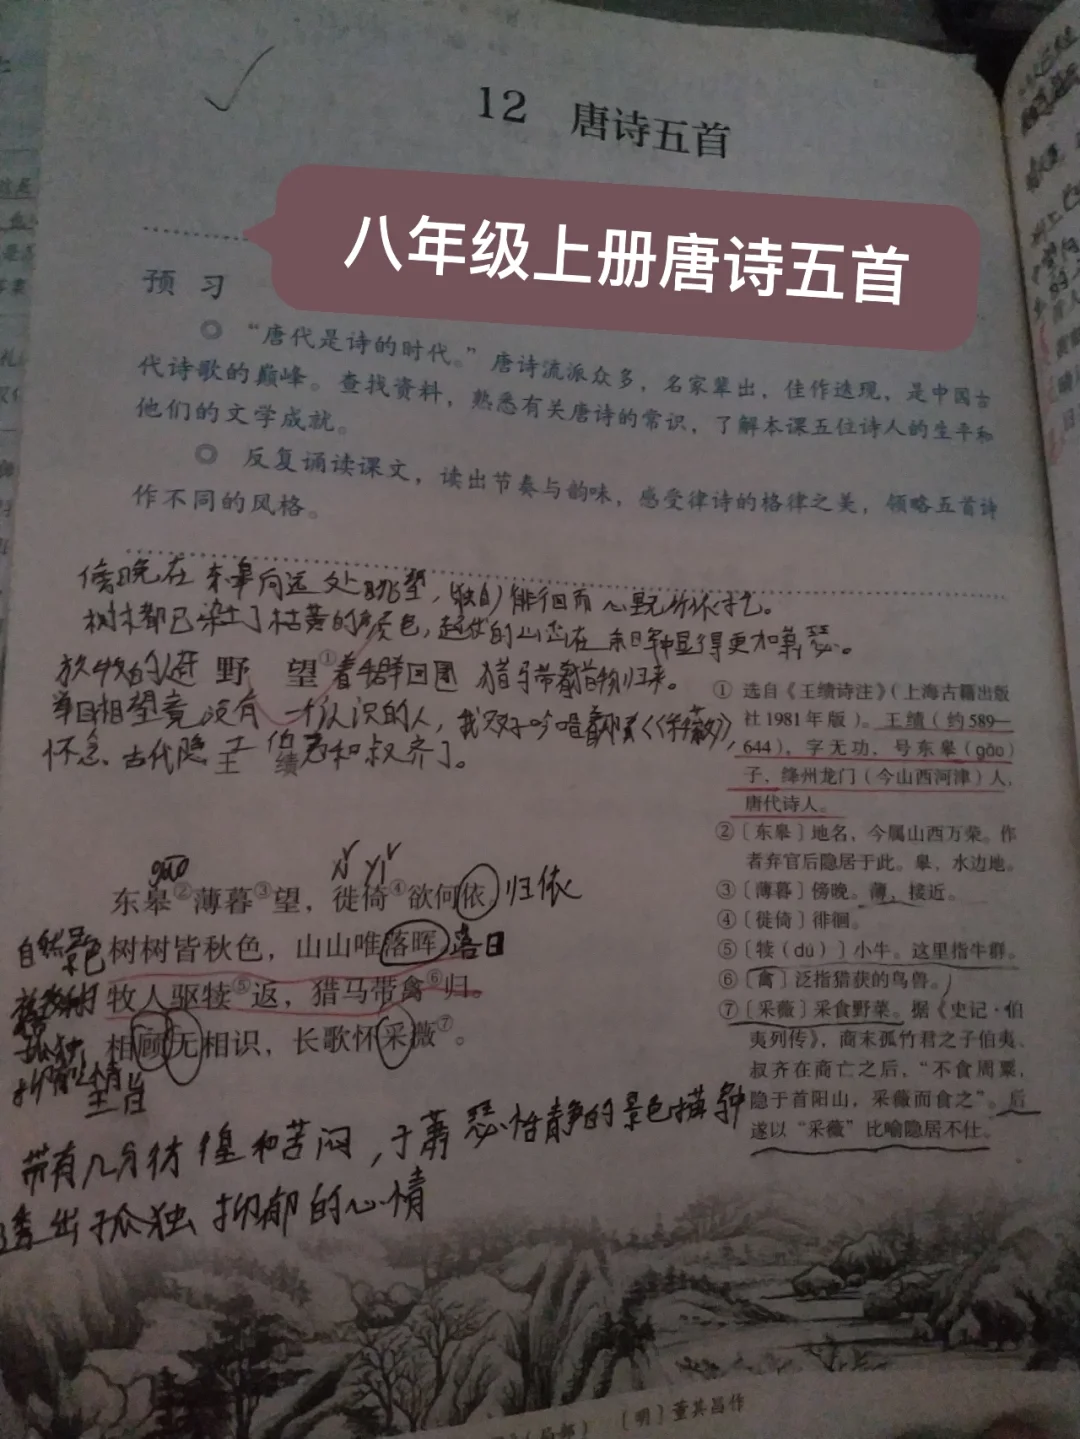 12 唐诗五首
八年级上册唐诗五首
预 习
◎ “唐代是诗的时代。”唐诗流派众多，名家辈出，佳作迭现，是中国古
代诗歌的巅峰。查找资料，熟悉有关唐诗的常识，了解本课五位诗人的生平和
他们的文学成就。
◎ 反复诵读课文，读出节奏与韵味，感受律诗的格律之美，领略五首诗
作不同的风格。
傍晚在东皋向远处眺望，独自徘徊而心里
树木都已染上了枯黄的颜色，起伏的山峦在余晖中显得更加萧瑟。
放牧的
野 望①
着牛群回圈 猎马带着猎物归来。
相望竟没有一个认识的人，我 吟唱着《采薇》，
怀念古代隐士伯 和叔齐了。
王 绩
gāo
xǐ yǐ
东皋②薄暮③望，徙倚④欲何依，归依
树树皆秋色，山山唯落晖 落日
自然景色
牧人驱犊⑤返，猎马带禽⑥归。
相顾无相识，长歌怀采薇⑦。
孤独
抑郁心情
主旨
带有几分彷徨和苦闷，于萧瑟恬静的景色描
透出孤独抑郁的心情
① 选自《王绩诗注》（上海古籍出版
社1981年版）。王绩（约589—
644），字无功，号东皋（gāo）
子，绛州龙门（今山西河津）人，
唐代诗人。
②〔东皋〕地名，今属山西万荣。作
者弃官后隐居于此。皋，水边地。
③〔薄暮〕傍晚。薄，接近。
④〔徙倚〕徘徊。
⑤〔犊（dú）〕小牛。这里指牛群。
⑥〔禽〕泛指猎获的鸟兽。
⑦〔采薇〕采食野菜。据《史记·伯
夷列传》，商末孤竹君之子伯夷、
叔齐在商亡之后，“不食周粟，
隐于首阳山，采薇而食之”。后
遂以“采薇”比喻隐居不仕。
〔明〕董其昌作